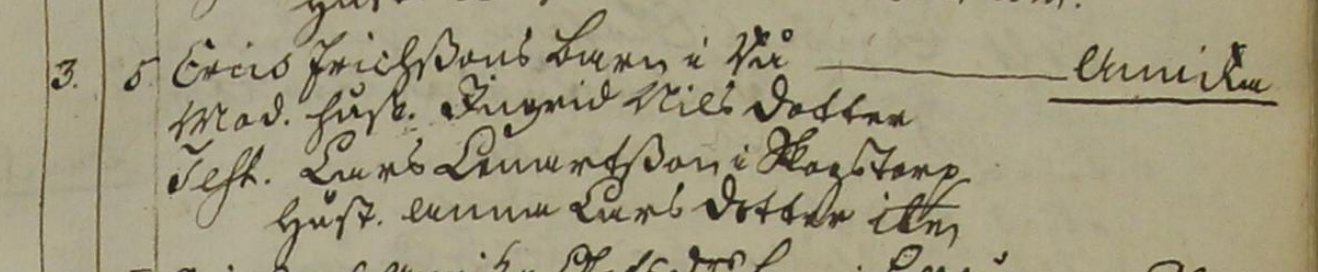 3. 5 Eric Erichssons barn i Vå Annika
Mod. hust. Ingrid Nils dotter
Test. Lars Lenartsson i Skogstorp
Hust. Anna Lars dotter